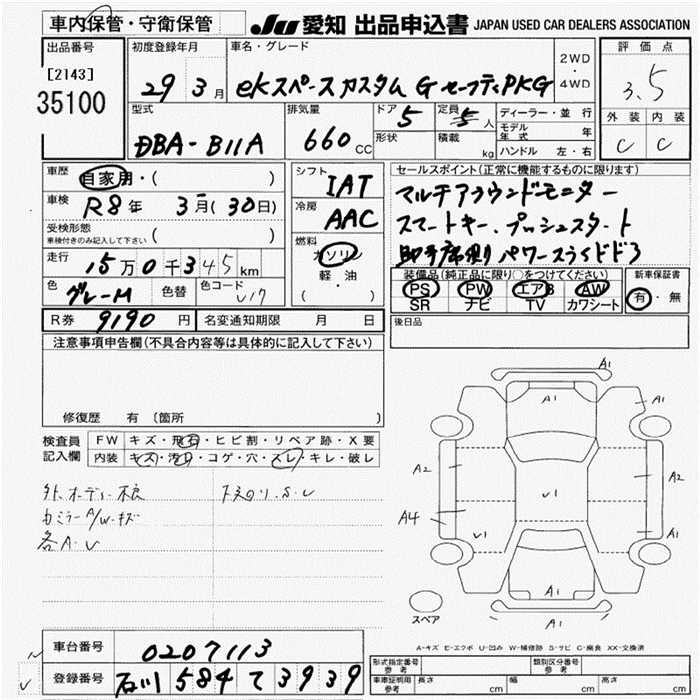 車内保管・守衛保管
JU 愛知 出品申込書 JAPAN USED CAR DEALERS ASSOCIATION
出品番号
[2143]
35100
初度登録年月
29 3月
車名・グレード
ekスペースカスタム G セーフティPKG
2WD
・
4WD
評価点
3.5
外装 内装
C C
型式
DBA-B11A
排気量
660 CC
ドア 5
形状
定員 5 人
積載 kg
ディーラー・並行
モデル年式 年
ハンドル 左・右
車歴
自家用・( )
車検
R8年 3月(30日)
受検形態
車検付きのみ記入して下さい ( )
走行
15万0千345km
色 グレーM 色替 色コード U17
シフト
IAT
冷房
AAC
燃料
ガソリン
軽・油
( )
セールスポイント(正常に機能するものに限ります)
マルチアラウンドモニター
スマートキー、プッシュスタート
助手席側パワースライドドア
装備品(純正品に限り○をつけてください)
PS PW エアB AW
SR ナビ TV カワシート
新車保証書
有・無
R券 9190 円 名変通知期限 月 日
後日品
注意事項申告欄(不具合内容等は具体的に記入して下さい)
修復歴 有 (箇所 )
検査員記入欄
FW キズ・飛石・ヒビ割・リペア跡・X要
内装 キズ・汚れ・コゲ・穴・スレ・キレ・破レ
外、ボディー不良 下廻り.S.U
カミラーA/W.キズ
各A.U
A1
A1
A1
A1
A2
A2
U1
A4
U1
A1
A1
A1
スペア
A-キズ E-エクボ U-凹み W-補修跡 S-サビ C-腐食 XX-交換済
車台番号 0207113
登録番号 石川 584 て 3939
形式指定番号 参考
類別区分番号 参考
車庫証明用 参考 長さ cm 幅 cm 高さ cm